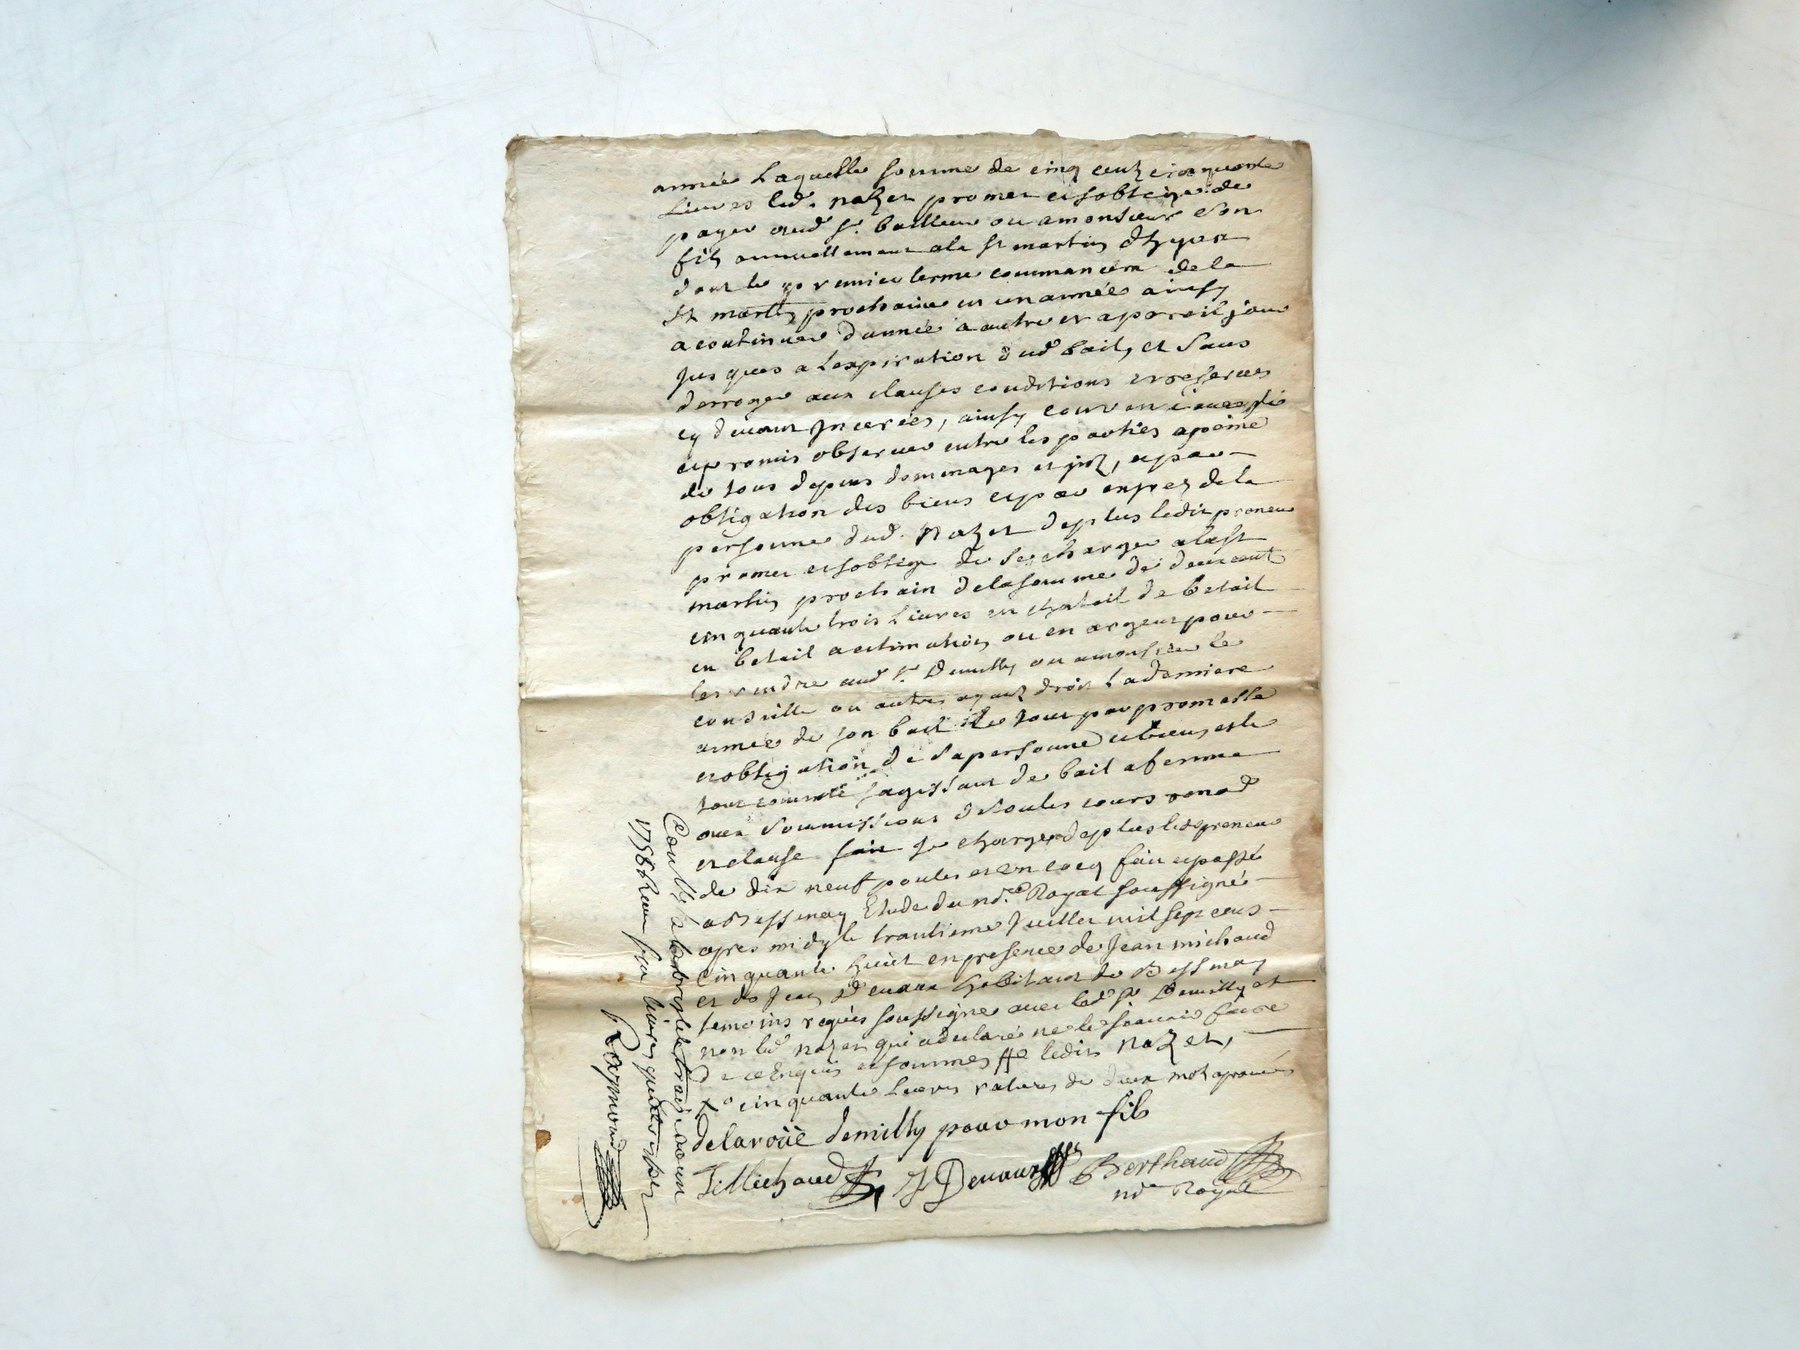 année Laquelle somme de cinq centz cinquante
Livres led. nazet promet et soblige de
payer aud Sr. bailleur ou a monsieur son
fils annuellement a la St martin dhyver
dont le premier terme commancera de la
St martin prochaine en un année ainsy
a continuer dannée a autre et a pareil jour
jusques a Lexpiration dud bail, et sans
derroger aux clauses conditions et reserves
cy devant Incerées, ainsy convenu
et promis observer entre les parties a peine
de tous depens dommages et jntz, et par
obligation des biens et par exprez de la
personne dud. Nazet deplus ledit preneur
promet et soblige de se charger a la St
martin prochain de la somme de deux cent
cinquante trois Livres en chatail de betail
en betail a estimation ou en argent pour
les rendre aud Sr Demilly ou a monsieur le
ou autres ayant droit La derniere
année de son bail le tout par promesse
et obligation de sa personne et biens et le
tout comme sagissant de bail a ferme
avec soumissions de toutes cours renod
et clause fait se charge deplus led preneur
de dix neuf poules et un cocq fait et passé
a Bessenay Etude du nore. Royal soussigné
apres midy le trantieme Juillet mil sept cens
Cinquante huict en presence de Jean michaud
et de Jean Devaux habitant de Bessenay
temoins requis soussigné avec led Sr Demilly et
non led nazet qui a declaré ne le scavoir faire
de ce Enquis et sommés ledit Nazet,
cinquante Livres ratures de deux mot aprouvés
delaroüe demilly pour mon fils
J Michaud J Devaux Berthaud
nre Royal
Conllé a Larbresle le trois aoust
1758 Receu six livres
Raymond